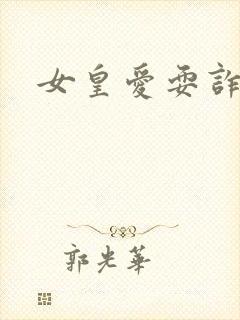 女皇愛耍詐
郭光華